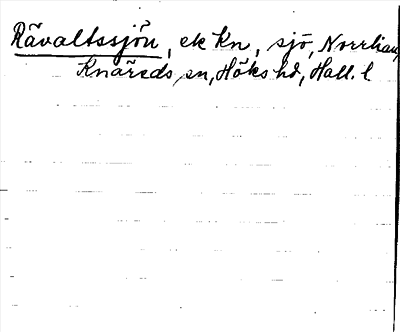 Rävaltssjön, ek Kn, sjö,
Knäreds sn, Höks hd, Hall. l